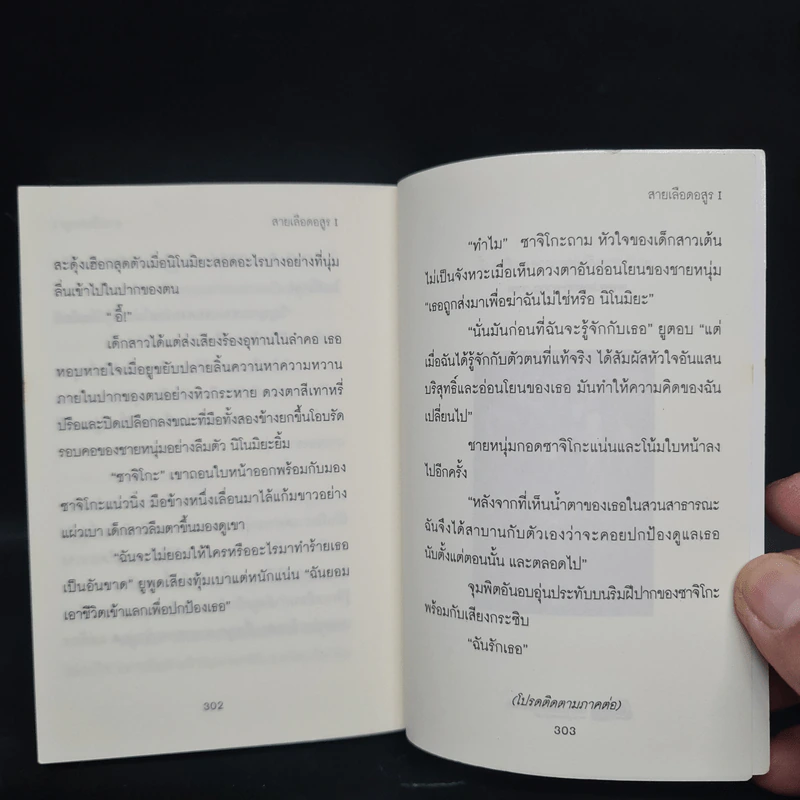 สายเลือดอสูร I
สะดุ้งเฮือกสุดตัวเมื่อนิโนมิยะสอดอะไรบางอย่างที่นุ่ม
ลื่นเข้าไปในปากของตน
"อื๊!"
เด็กสาวได้แต่ส่งเสียงร้องอุทานในลำคอ เธอ
หอบหายใจเมื่อยูขยับปลายลิ้นควานหาความหวาน
ภายในปากของตนอย่างหิวกระหาย ดวงตาสีเทาหรี่
ปรือและปิดเปลือกลงขณะที่มือทั้งสองข้างยกขึ้นโอบรัด
รอบคอของชายหนุ่มอย่างลืมตัว นิโนมิยะยิ้ม
"ซาจิโกะ" เขาถอนใบหน้าออกพร้อมกับมอง
ซาจิโกะแน่วนิ่ง มือข้างหนึ่งเลื่อนมาไล้แก้มขาวอย่าง
แผ่วเบา เด็กสาวลืมตาขึ้นมองดูเขา
"ฉันจะไม่ยอมให้ใครหรืออะไรมาทำร้ายเธอ
เป็นอันขาด" ยูพูดเสียงทุ้มเบาแต่หนักแน่น "ฉันยอม
เอาชีวิตเข้าแลกเพื่อปกป้องเธอ"
302
สายเลือดอสูร I
"ทำไม" ซาจิโกะถาม หัวใจของเด็กสาวเต้น
ไม่เป็นจังหวะเมื่อเห็นดวงตาอันอ่อนโยนของชายหนุ่ม
"เธอถูกส่งมาเพื่อฆ่าฉันไม่ใช่หรือ นิโนมิยะ"
"นั่นมันก่อนที่ฉันจะรู้จักกับเธอ" ยูตอบ "แต่
เมื่อฉันได้รู้จักกับตัวตนที่แท้จริง ได้สัมผัสหัวใจอันแสน
บริสุทธิ์และอ่อนโยนของเธอ มันทำให้ความคิดของฉัน
เปลี่ยนไป"
ชายหนุ่มกอดซาจิโกะแน่นและโน้มใบหน้าลง
ไปอีกครั้ง
"หลังจากที่เห็นน้ำตาของเธอในสวนสาธารณะ
ฉันจึงได้สาบานกับตัวเองว่าจะคอยปกป้องดูแลเธอ
นับตั้งแต่ตอนนั้น และตลอดไป"
จุมพิตอันอบอุ่นประทับบนริมฝีปากของซาจิโกะ
พร้อมกับเสียงกระซิบ
"ฉันรักเธอ"
(โปรดติดตามภาคต่อ)
303